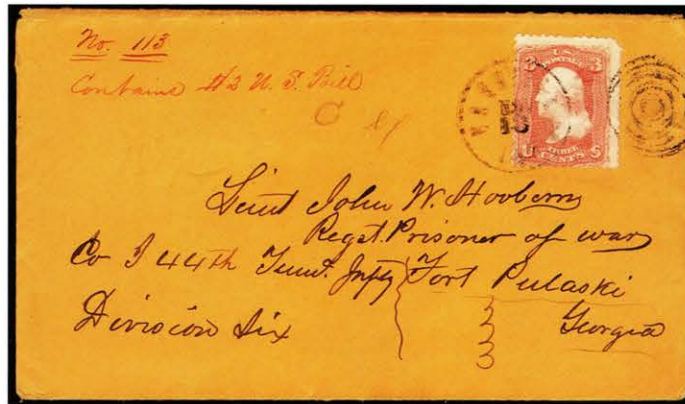 No. 113
Contains $2 U. S. Bill
U.S.
POSTAGE
3 3
THREE
CENTS
U S
Lieut John W. Hooberry
Regst. Prisoner of war
Co I 44th Tennt. Infty Fort Pulaski
Division Six Georgia